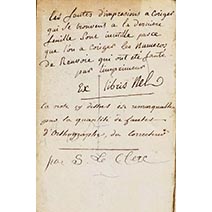 les fautes d'impression a coriger
qui se trouvent a la derniere
feuille sont inutille parce
que l'on a coriger les Numeros
de Renvoie qui ont ete faute
par l'imprimeur
Ex libris
la note cy dessus est remarquable
pour la quantité de fautes
d'orthographe, du correcteur
par S Le Clerc